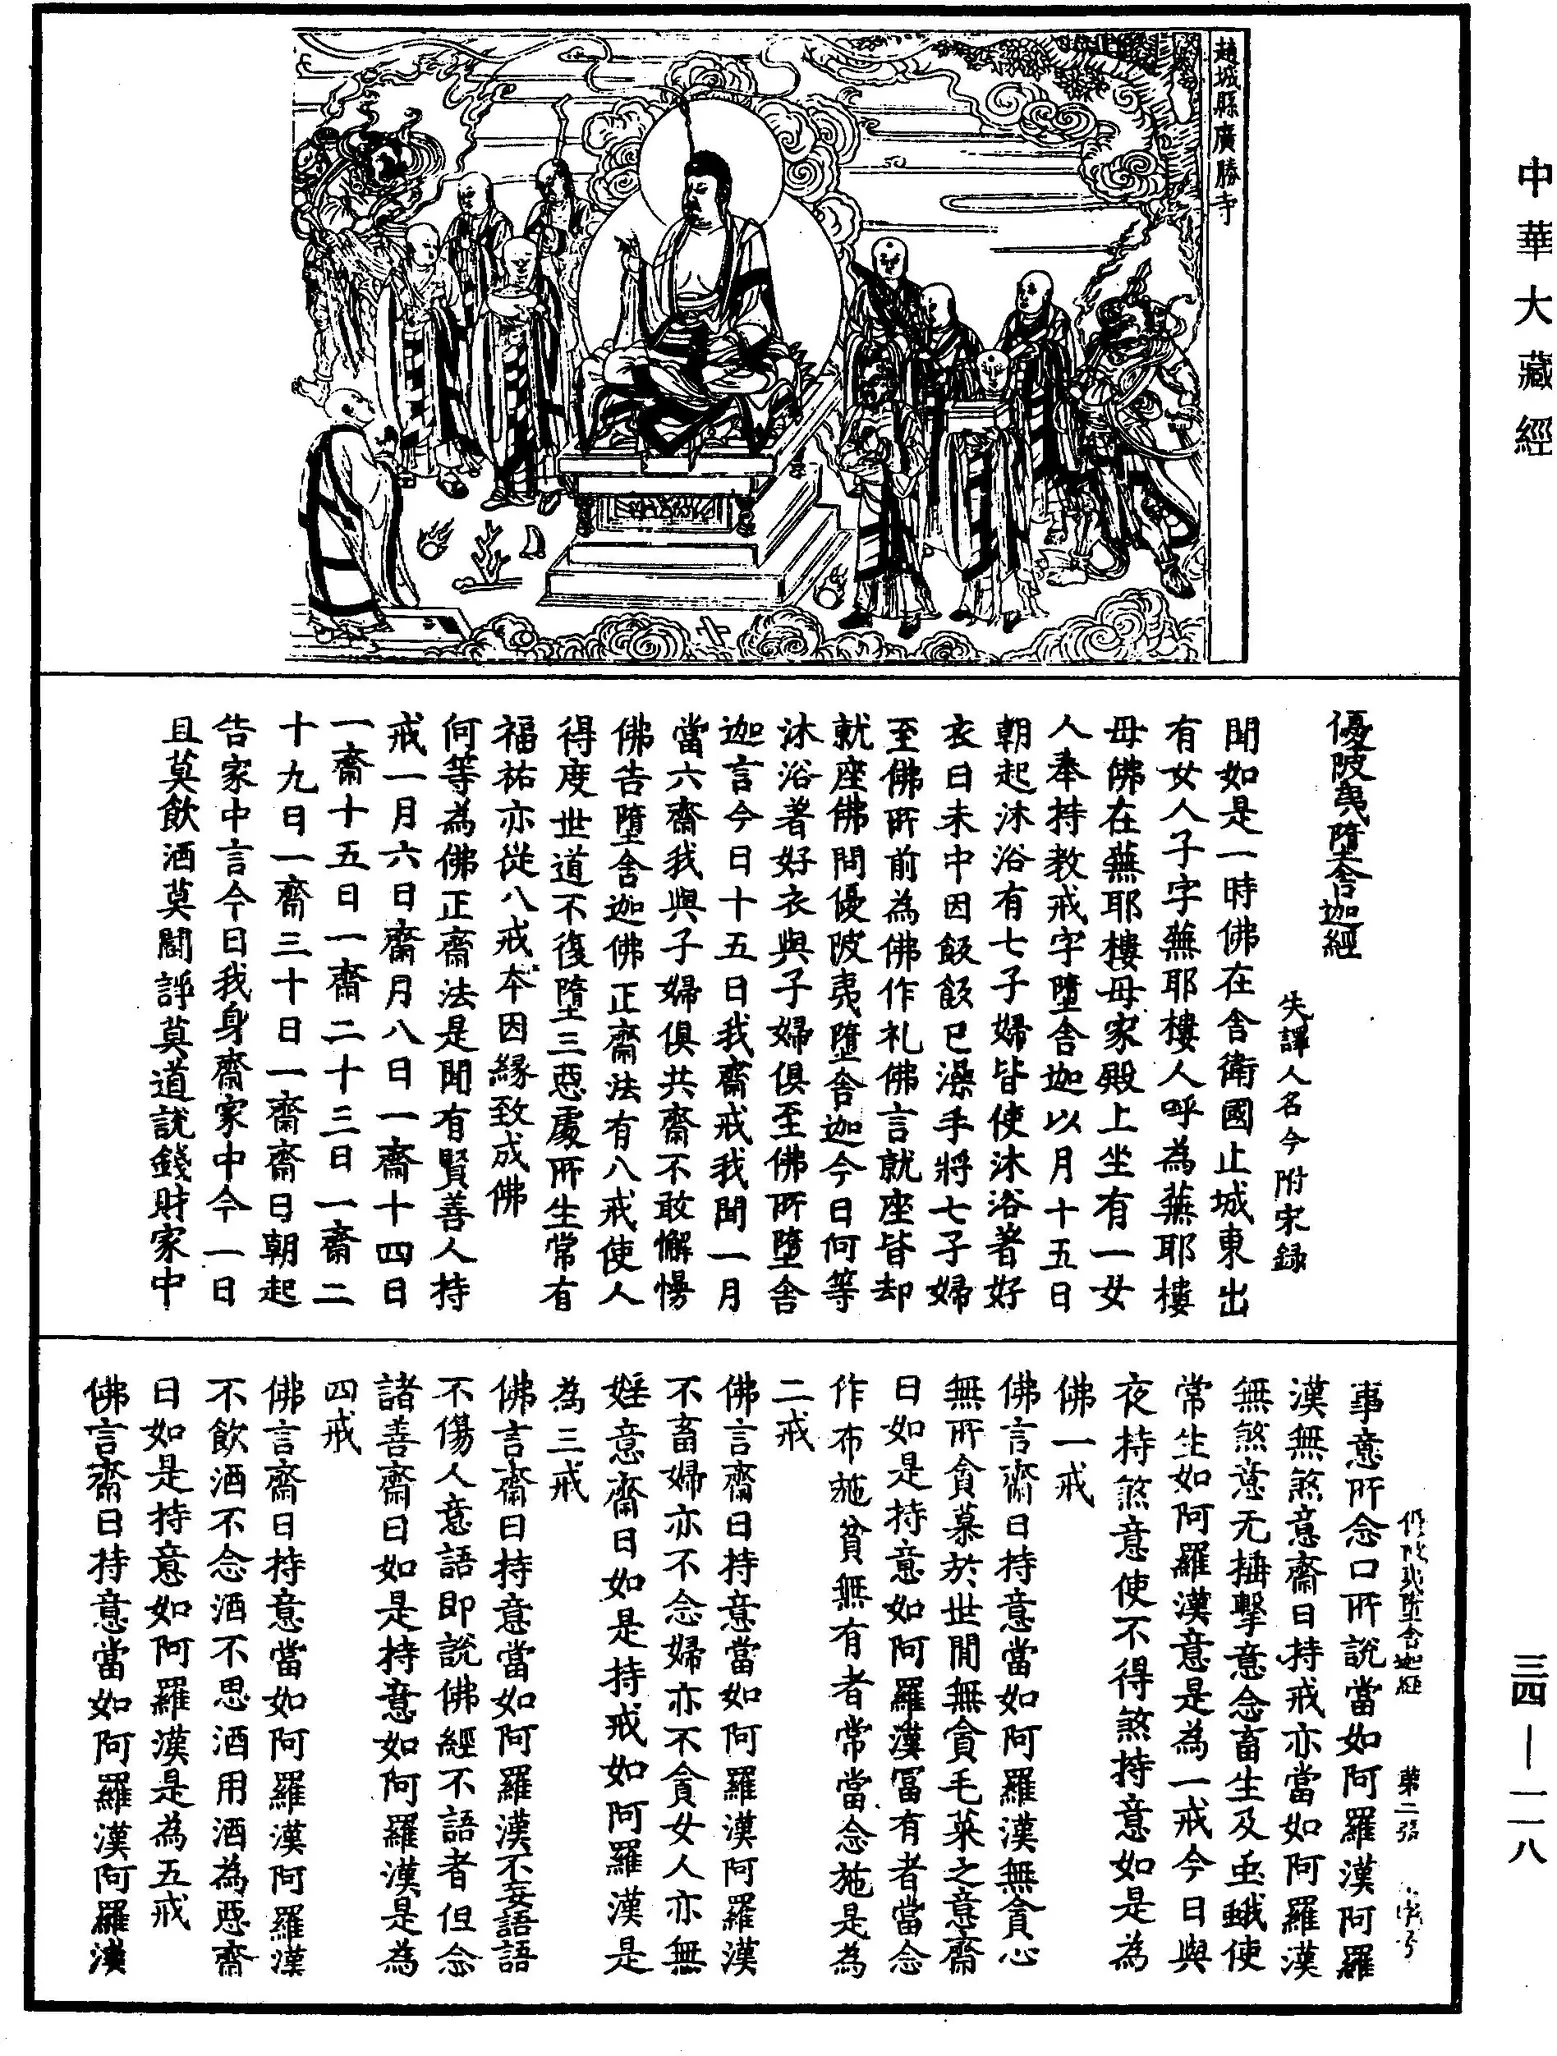 中華大藏經
趙城縣廣勝寺
優陂夷墮舍迦經
失譯人名今附宋録
聞如是一時佛在舍衛國止城東出
有女人子字蕪耶樓人呼為蕪耶樓
母佛在蕪耶樓母家殿上坐有一女
人奉持教戒字墮舍迦以月十五日
朝起沐浴有七子婦皆使沐浴著好
衣日未中因飯飯已澡手將七子婦
至佛所前為佛作礼佛言就座皆却
就座佛問優陂夷墮舍迦今日何等
沐浴著好衣與子婦俱至佛所墮舍
迦言今日十五日我齋戒我聞一月
當六齋我與子婦俱共齋不敢懈慢
佛告墮舍迦佛正齋法有八戒使人
得度世道不復墮三惡處所生常有
福祐亦從八戒本因緣致成佛
何等為佛正齋法是聞有賢善人持
戒一月六日齋月八日一齋十四日
一齋十五日一齋二十三日一齋二
十九日一齋三十日一齋齋日朝起
告家中言今日我身齋家中今一日
且莫飲酒莫鬪諍莫道說錢財家中
舍迦經 第二張
事意所念口所說當如阿羅漢阿羅
漢無煞意齋日持戒亦當如阿羅漢
無煞意无捶擊意念畜生及虫蛾使
常生如阿羅漢意是為一戒今日與
夜持煞意使不得煞持意如是為
佛一戒
佛言齋日持意當如阿羅漢無貪心
無所貪慕於世間無貪毛菜之意齋
日如是持意如阿羅漢冨有者當念
作布施貧無有者常當念施是為
二戒
佛言齋日持意當如阿羅漢阿羅漢
不畜婦亦不念婦亦不貪女人亦無
婬意齋日如是持戒如阿羅漢是
為三戒
佛言齋日持意當如阿羅漢不妄語語
不傷人意語即說佛經不語者但念
諸善齋日如是持意如阿羅漢是為
四戒
佛言齋日持意當如阿羅漢阿羅漢
不飲酒不念酒不思酒用酒為惡齋
日如是持意如阿羅漢是為五戒
佛言齋日持意當如阿羅漢阿羅漢
三四—一一八